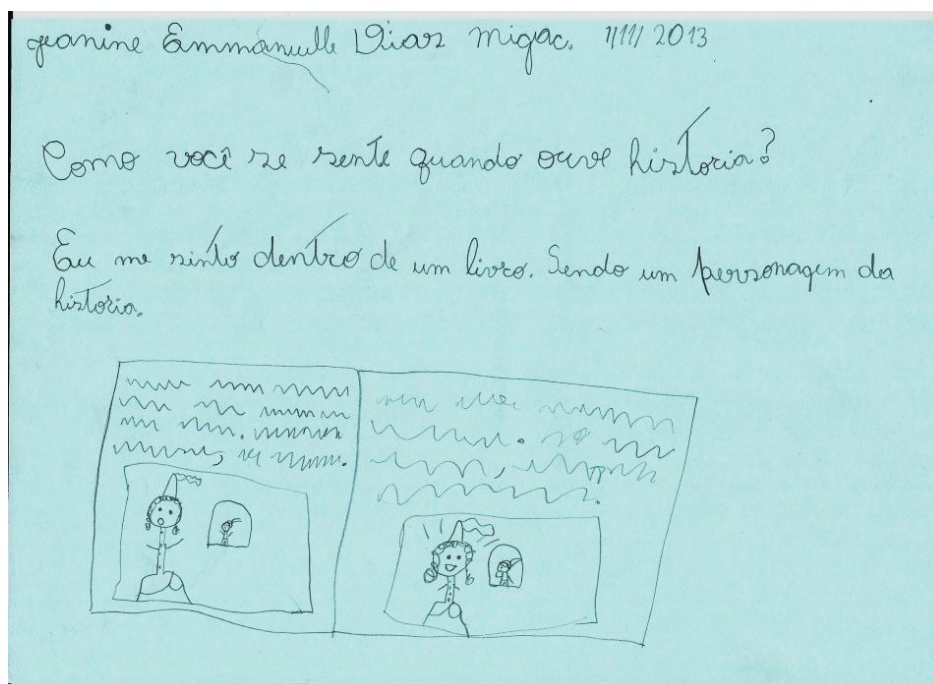 Jeanine Emmanuelle Dias Migac. 1/11/2013
Como você se sente quando ouve história?
Eu me sinto dentro de um livro. Sendo um personagem da
história.